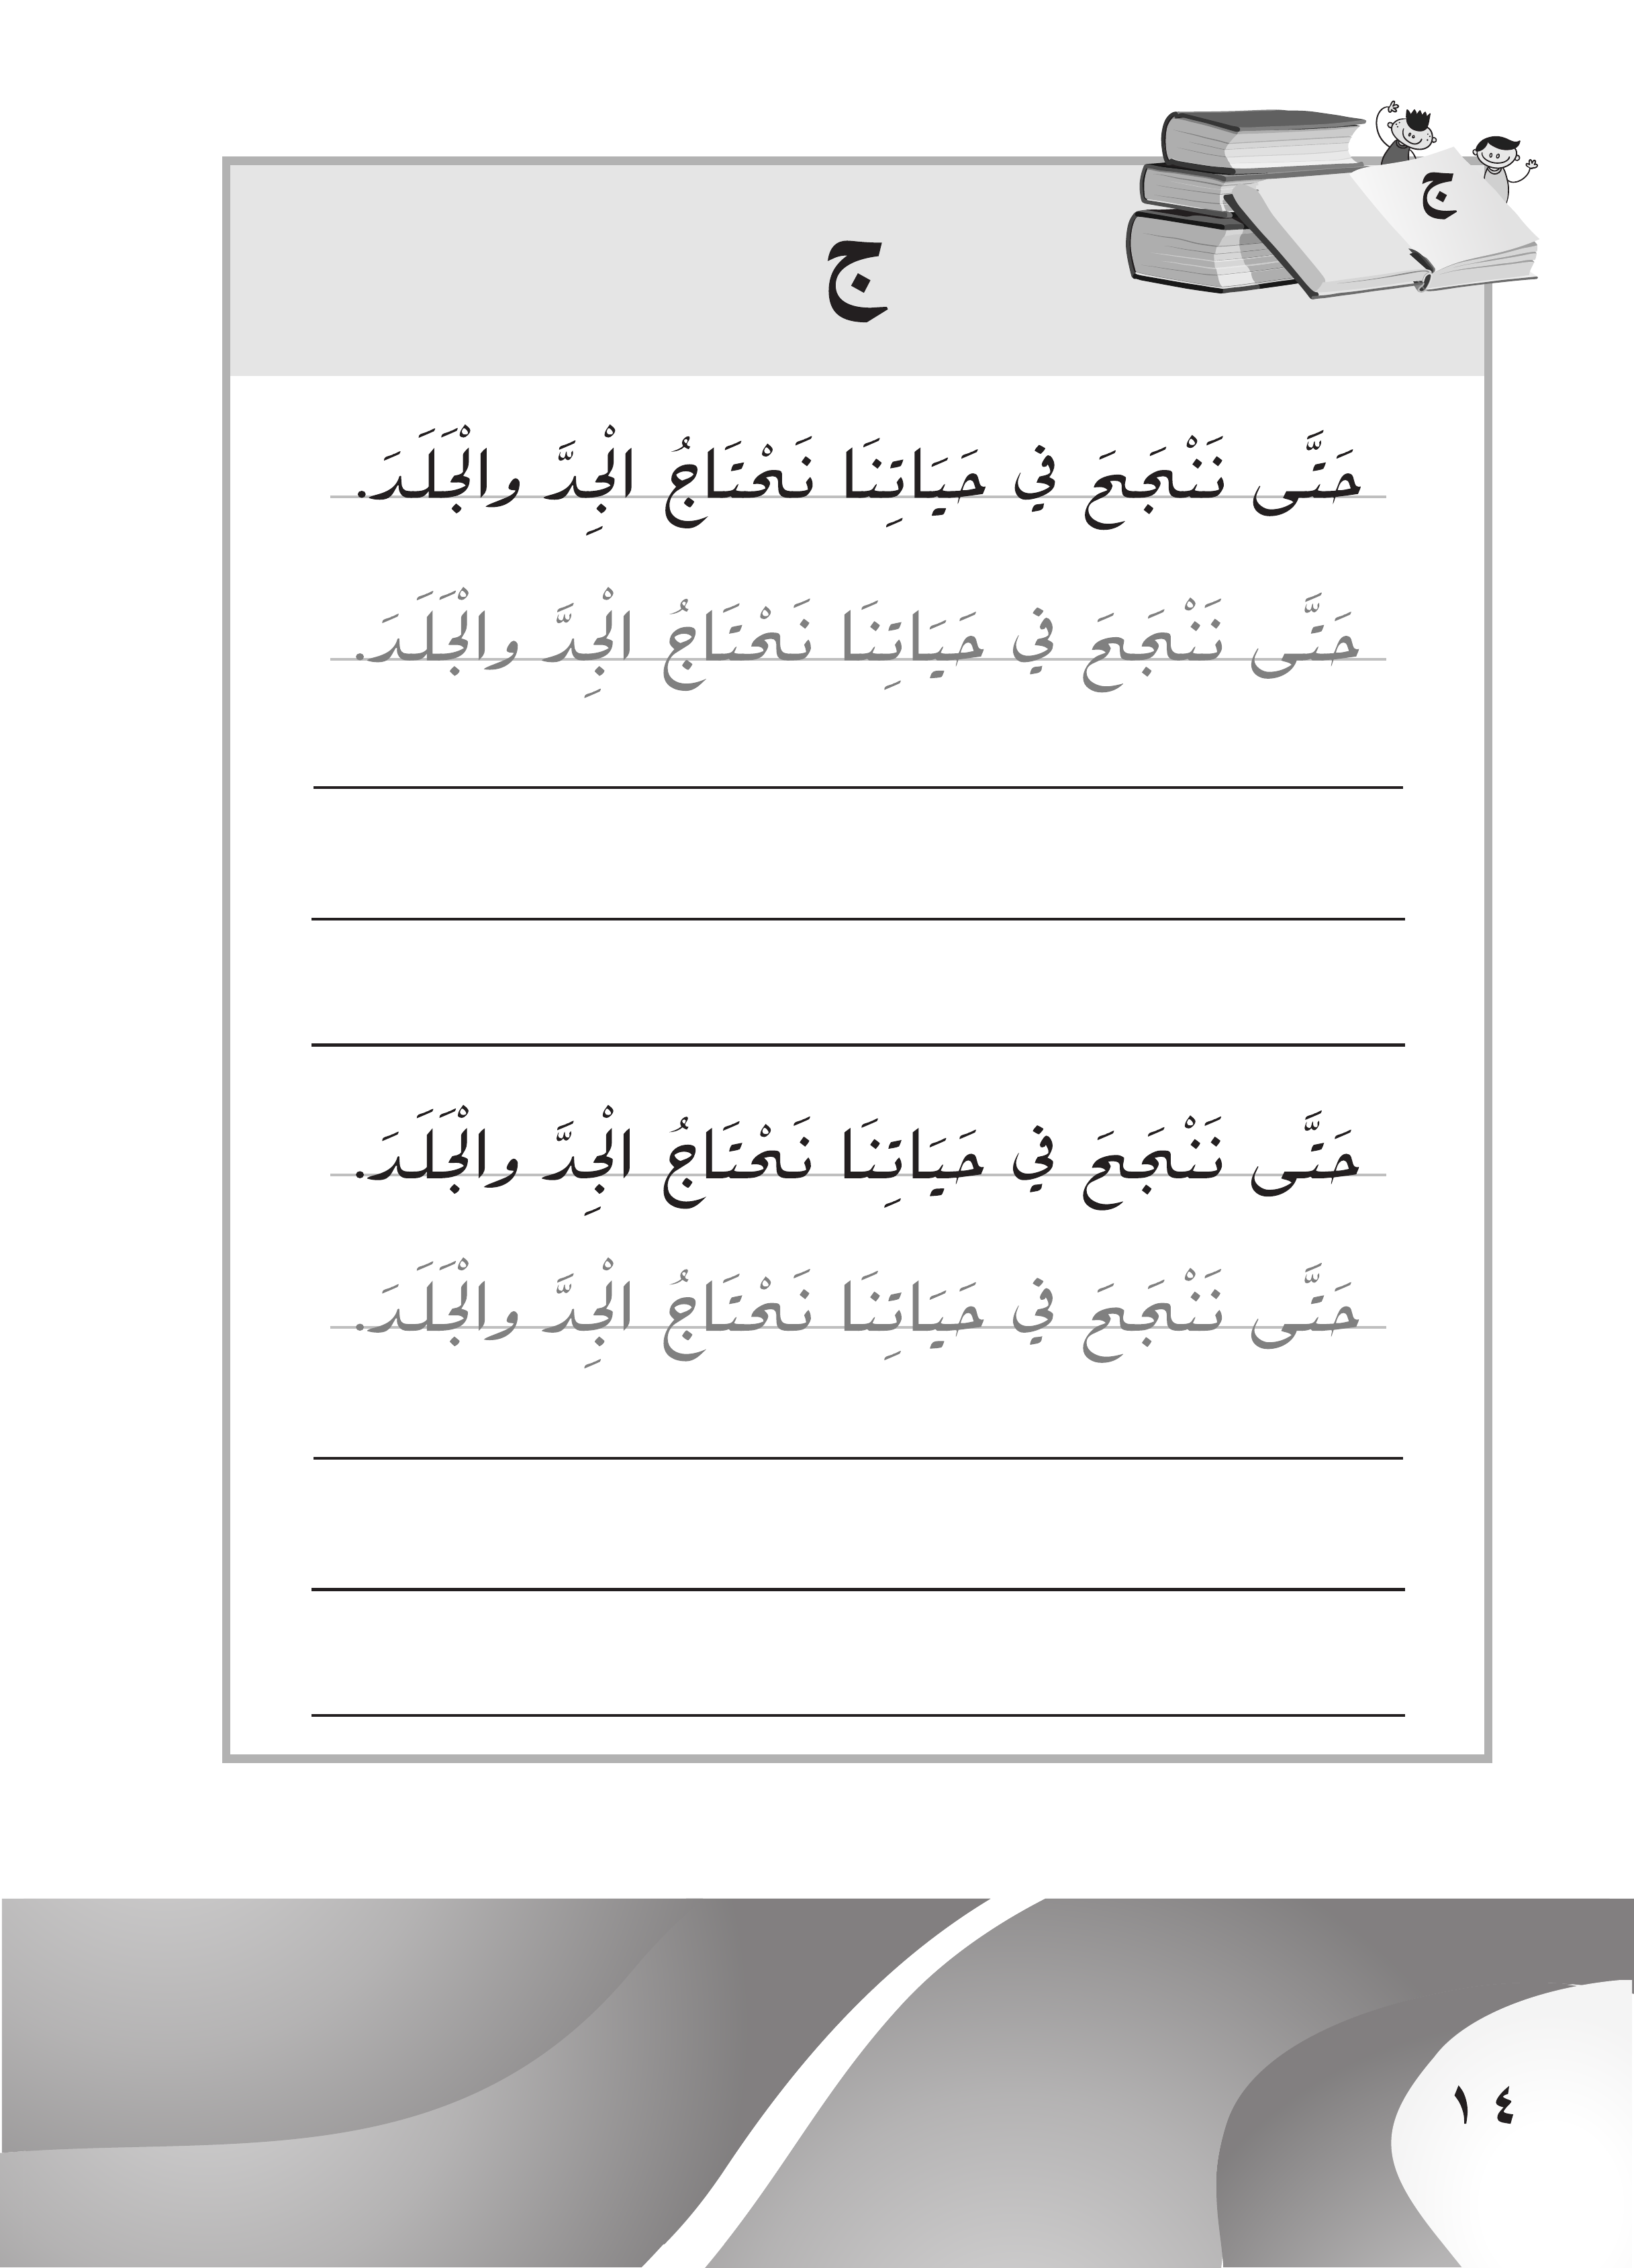 ج
ج
حَتَّى نَنْجَحَ في حَيَاتِنَا نَحْتَاجُ الْجِدَّ والْجَلَدَ.
حَتَّى نَنْجَحَ في حَيَاتِنَا نَحْتَاجُ الْجِدَّ والْجَلَدَ.
حَتَّى نَنْجَحَ في حَيَاتِنَا نَحْتَاجُ الْجِدَّ والْجَلَدَ.
حَتَّى نَنْجَحَ في حَيَاتِنَا نَحْتَاجُ الْجِدَّ والْجَلَدَ.
١٤